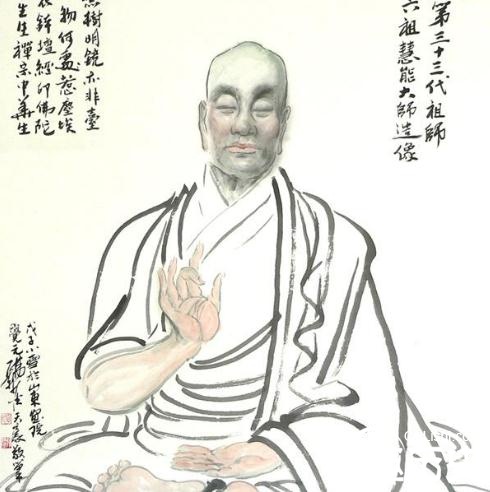 第三十三代祖師
六祖慧能大師造像
無樹明鏡亦非臺
物何處惹塵埃
衣鉢壇經印佛陀
生生禪宗中華生
戊子小雪於山東畫院
覺元